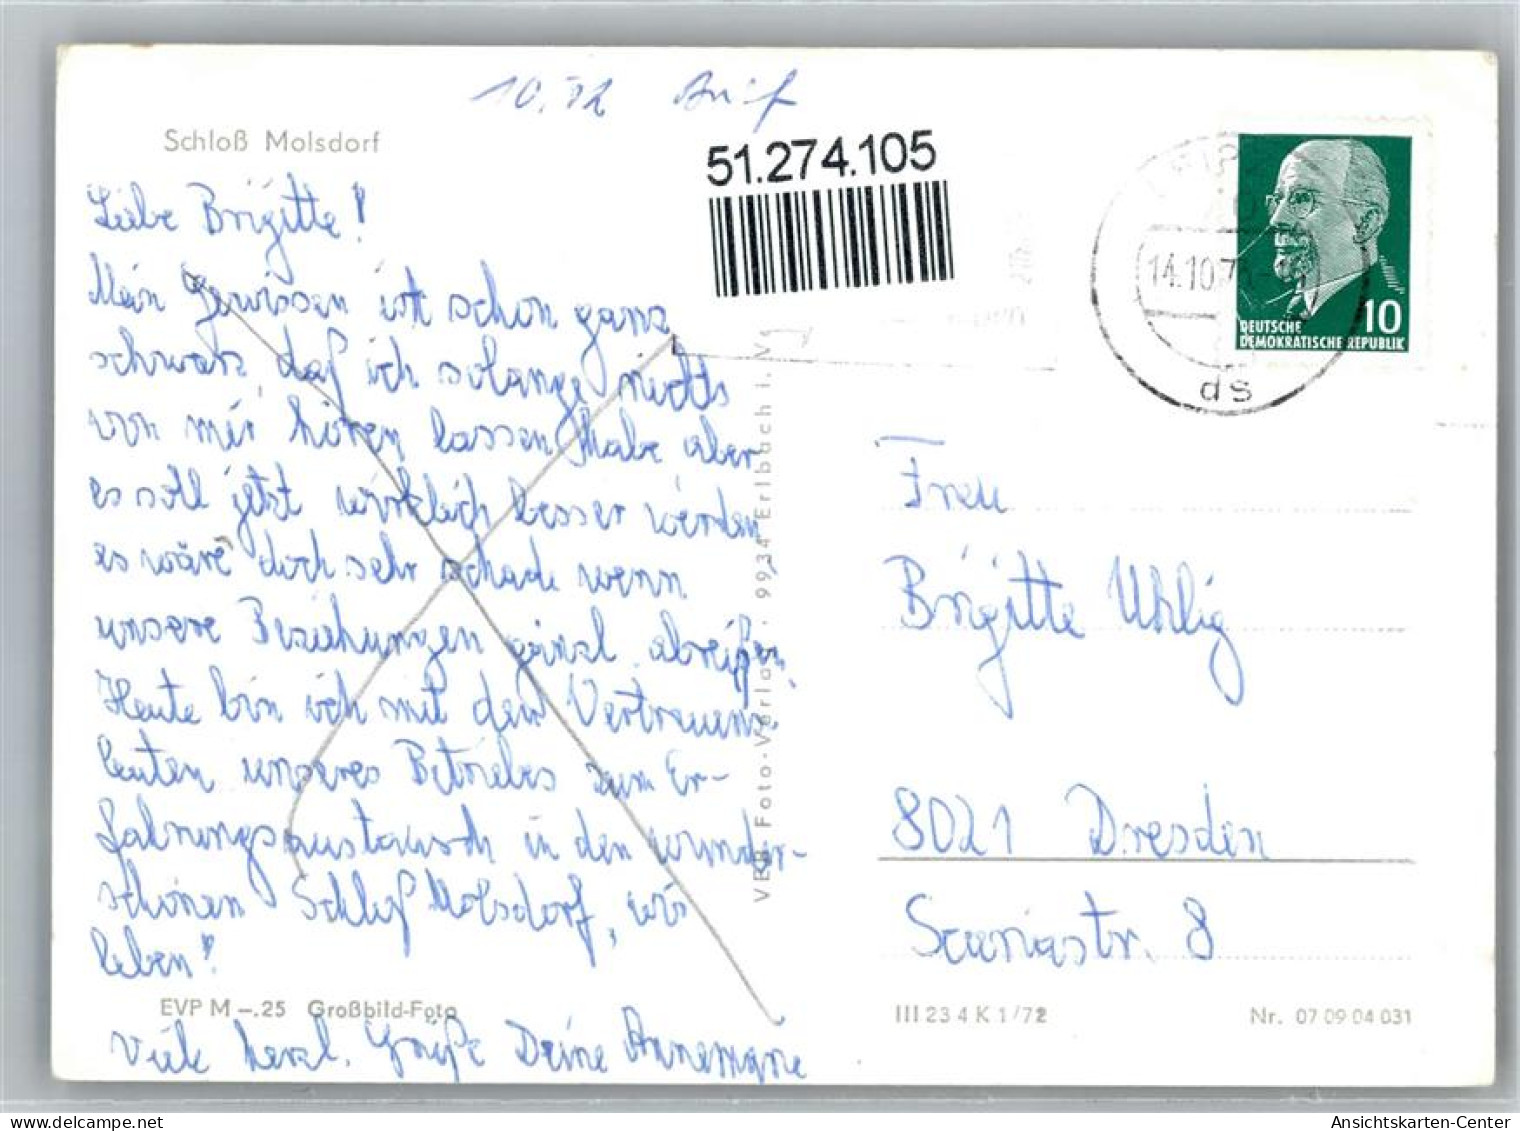 10.72 Brief
Schloß Molsdorf
51.274.105
Liebe Brigitte!
Mein Gewissen ist schon ganz
schwarz, daß ich solange nichts
von mir hören lassen habe aber
es soll jetzt wirklich besser werden,
es wäre doch sehr schade wenn
unsere Beziehungen gänzl. abreißen.
Heute bin ich mit den Vertrauens-
leuten unseres Betriebes zum Er-
fahrungsaustausch in den wunder-
schönen Schloß Molsdorf, wir
leben!
EVP M -.25 Großbild-Foto
Viele herzl. Grüße Deine Annemarie
VEB Foto-Verlag · 9934 Erlbach i. V.
14.10.7
ds
10
DEUTSCHE
DEMOKRATISCHE REPUBLIK
Frau
Brigitte Uhlig
8021 Dresden
Scariastr. 8
III 23 4 K 1/72
Nr. 07 09 04 031
Ansichtskarten-Center